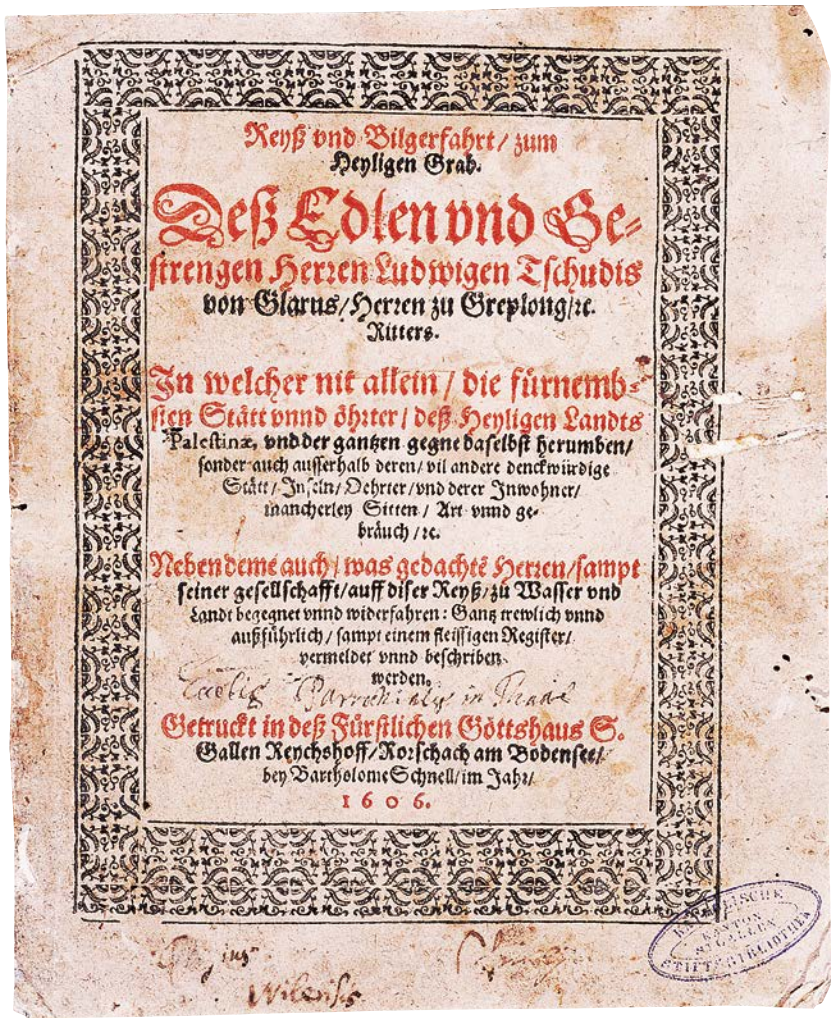 Reyß vnd Bilgerfahrt / zum
Heyligen Grab.
Deß Edlen vnd Ge-
strengen Herren Ludwigen Tschudis
von Glarus / Herren zu Greplong / ꝛc.
Ritters.
In welcher nit allein / die fürnemb-
sten Stätt vnnd öhrter / deß Heyligen Landts
Palestinæ, vnd der gantzen gegne daselbst herumben /
sonder auch ausserhalb deren / vil andere denckwürdige
Stätt / Inseln / Oehrter / vnd derer Inwohner /
mancherley Sitten / Art vnnd ge-
bräuch / ꝛc.
Neben deme auch / was gedachtē Herren / sampt
seiner gesellschafft / auff diser Reyß / zu Wasser vnd
Landt begegnet vnnd widerfahren: Gantz trewlich vnnd
außführlich / sampt einem fleissigen Register /
vermeldet vnnd beschriben
werden.
in
Getruckt in deß Fürstlichen Gottshaus S.
Gallen Reychshoff / Rorschach am Bodensee /
bey Bartholome Schnell / im Jahr /
1606.
KANTON
ST. GALLEN
STIFTSBIBLIOTHEK